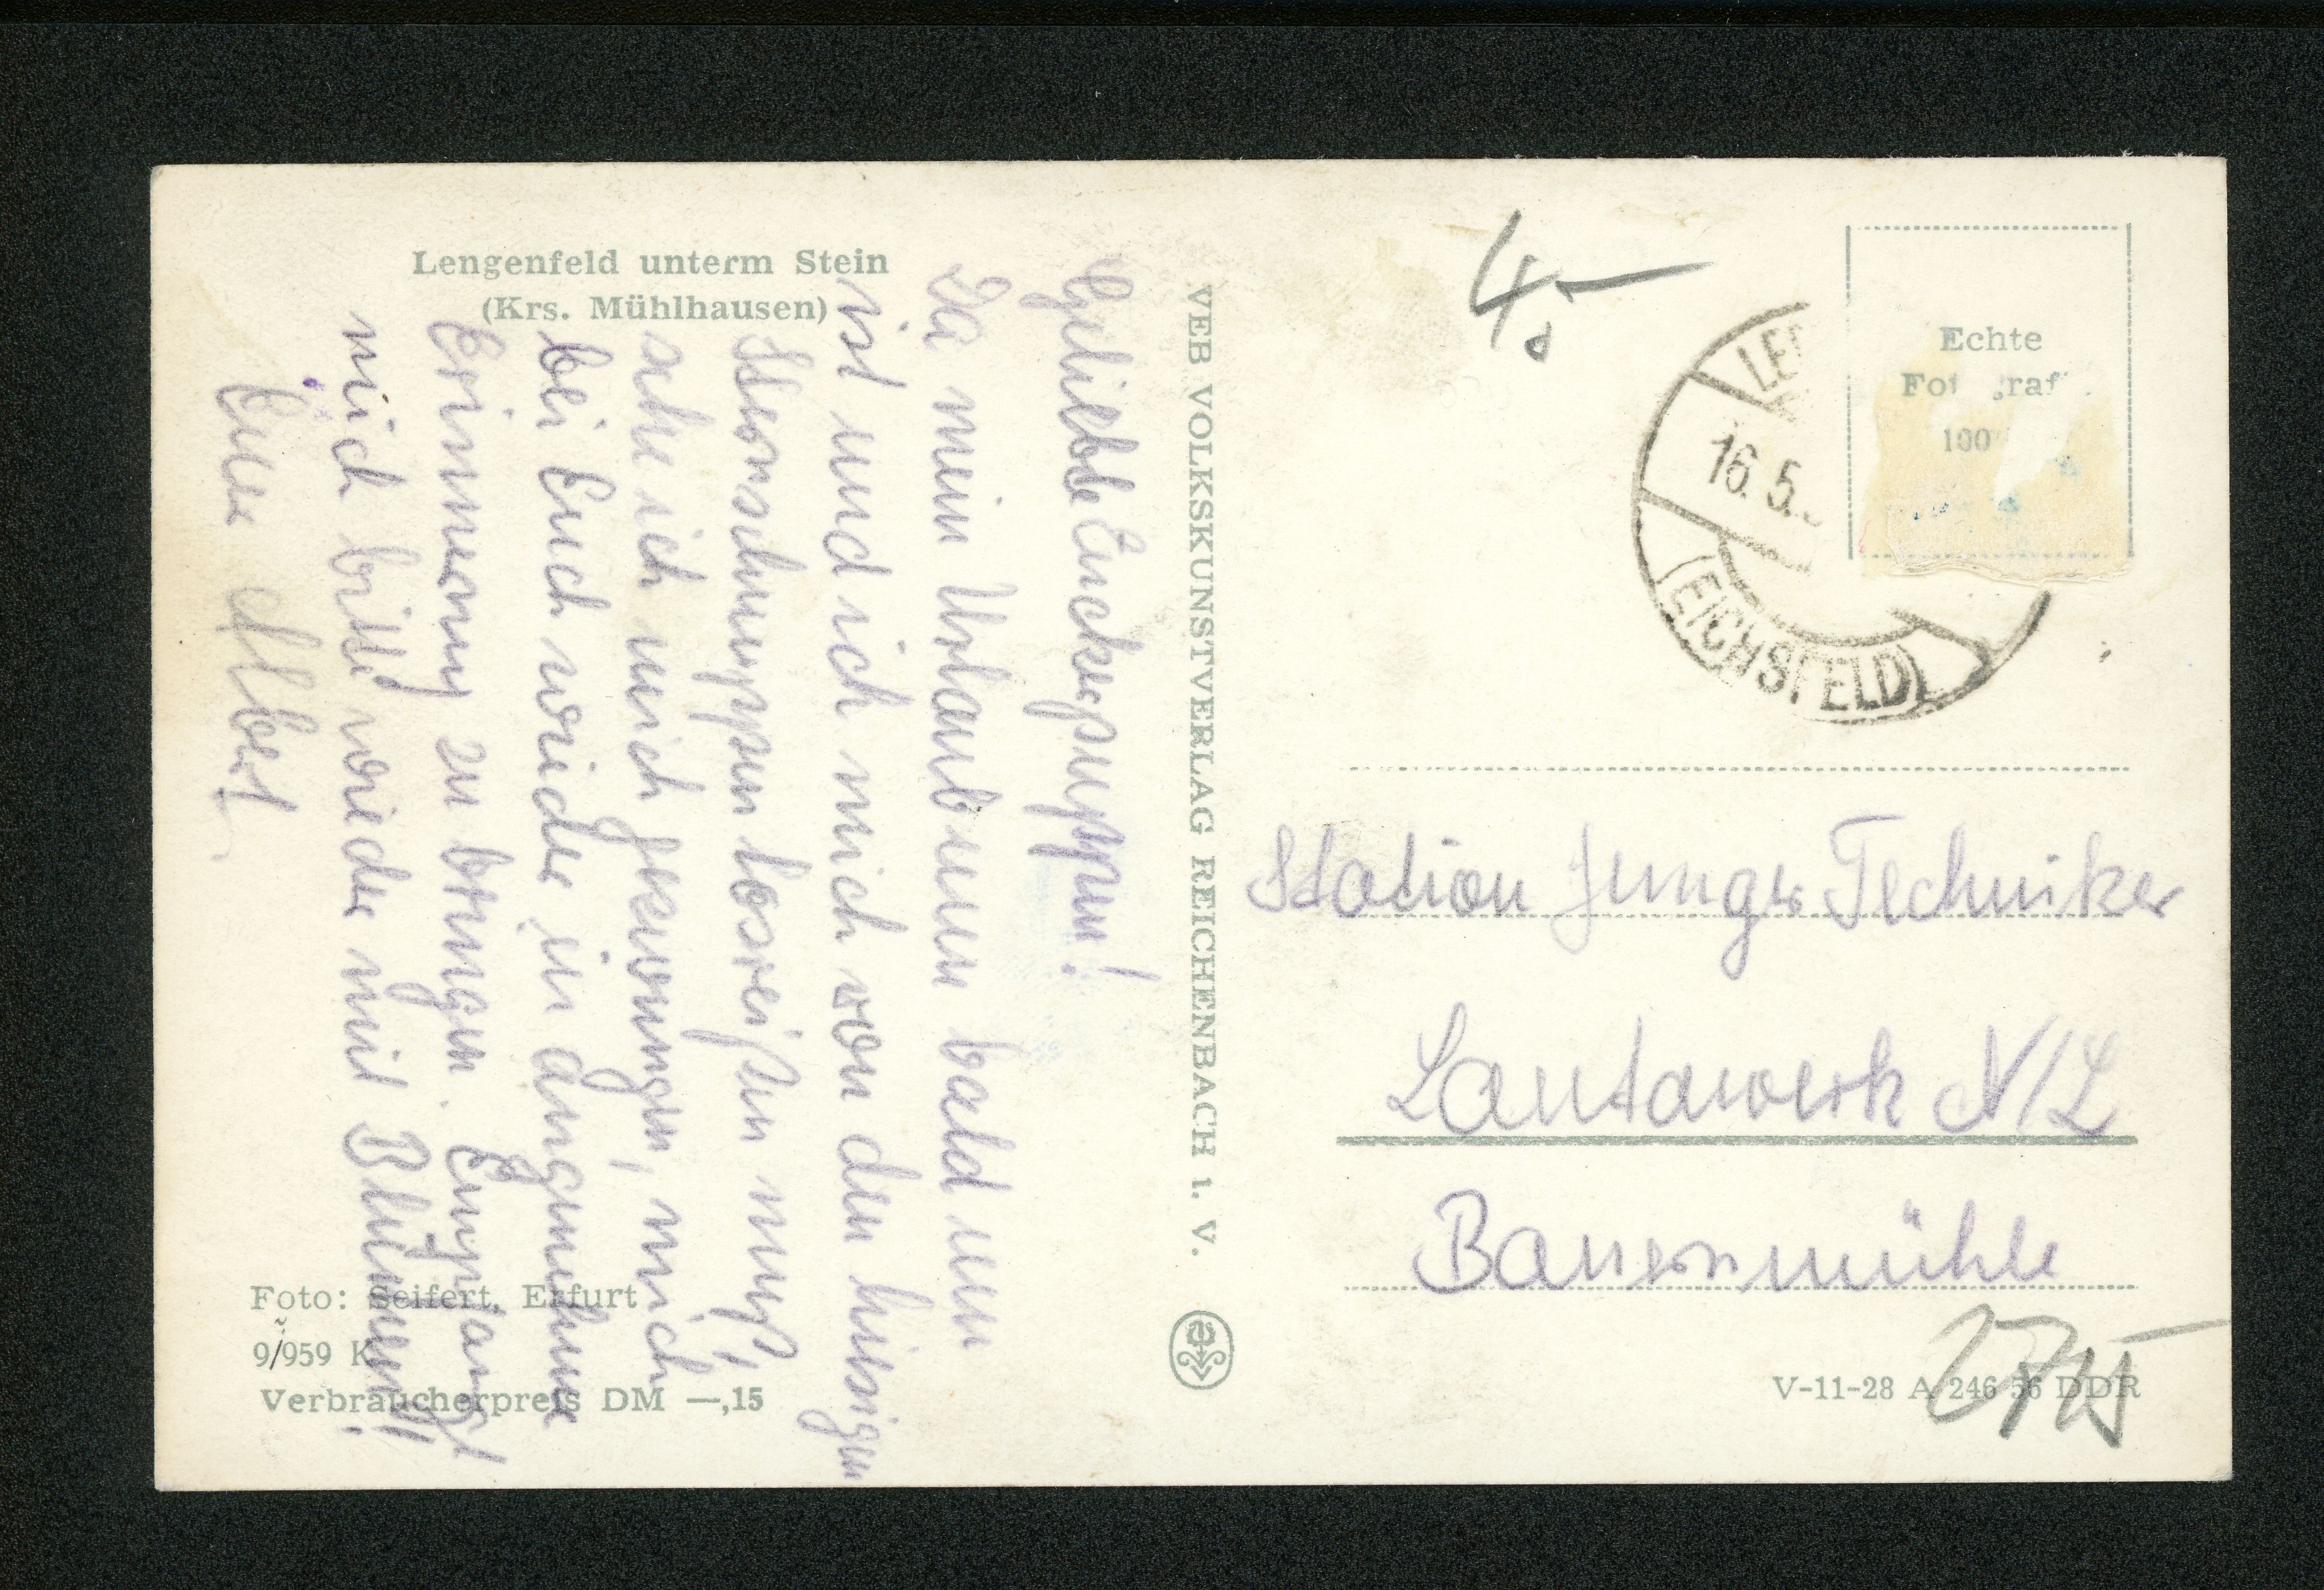 Lengenfeld unterm Stein
(Krs. Mühlhausen)
Geliebte Zuckerpuppen!
Da mein Urlaub nun bald um
ist und ich mich von den hiesigen
losreißen muß,
sehe ich mich gezwungen, mich
bei Euch wieder in angenehme
Erinnerung zu bringen. Empfangt
mich bitte wieder mit Blumen!
Euer Albert
Foto: Seifert, Erfurt
9/959 K
Verbraucherpreis DM —,15
VEB VOLKSKUNSTVERLAG REICHENBACH i. V.
4,-
Echte
100
LE
16. 5.
(EICHSFELD)
Station Junger Techniker
Lautawerk N/L
Bauernmühle
V-11-28 A 246 56 DDR